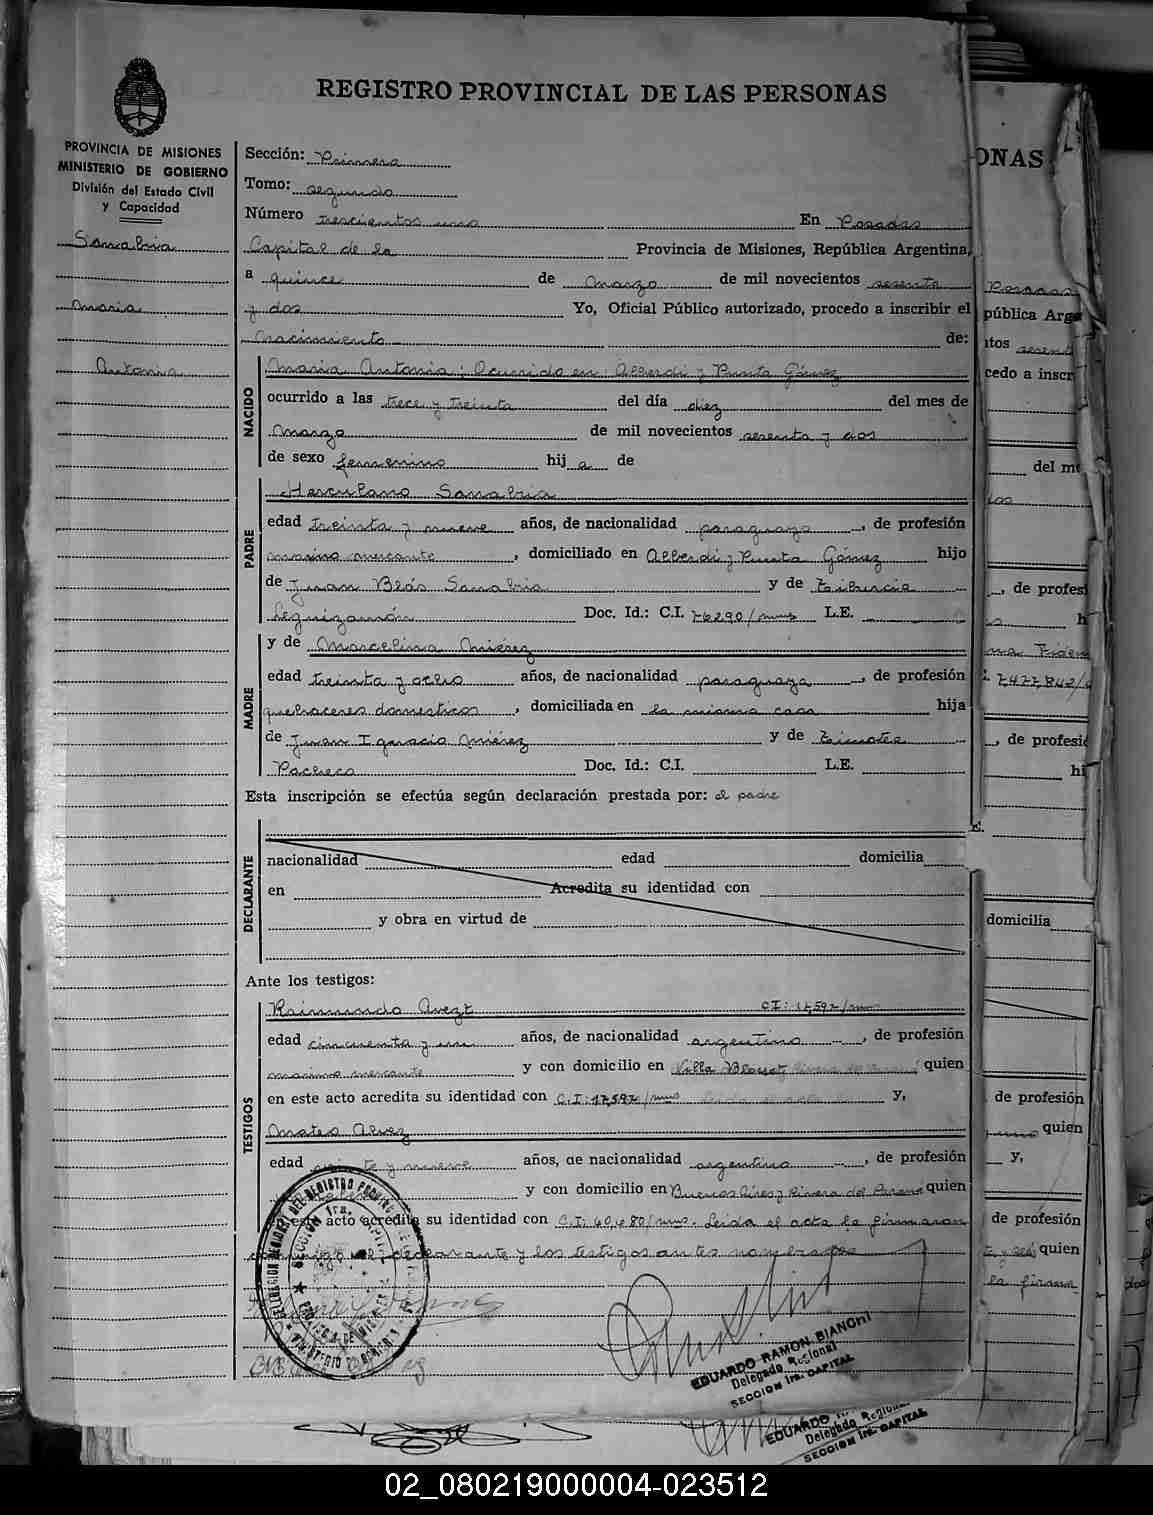 REGISTRO PROVINCIAL DE LAS PERSONAS
PROVINCIA DE MISIONES
MINISTERIO DE GOBIERNO
División del Estado Civil
y Capacidad
Sanabria
Maria
Antonia
Sección: Primera
Tomo: segundo
Número trescientos uno En Posadas
Capital de la Provincia de Misiones, República Argentina,
a quince de marzo de mil novecientos sesenta
y dos Yo, Oficial Público autorizado, procedo a inscribir el
Nacimiento de:
NACIDO
Maria Antonia; Ocurrido en: Alberdi y Punta Gómez
ocurrido a las trece y treinta del día diez del mes de
Marzo de mil novecientos sesenta y dos
de sexo femenino hij a de
PADRE
Herculano Sanabria
edad treinta y nueve años, de nacionalidad paraguaya, de profesión
marino mercante, domiciliado en Alberdi y Punta Gómez hijo
de Juan Blás Sanabria y de Tiburcia
Leguizamón Doc. Id.: C.I. 76290/mns L.E.
MADRE
y de Marcelina Miérez
edad treinta y ocho años, de nacionalidad paraguaya, de profesión
quehaceres domesticos, domiciliada en la misma casa hija
de Juan Ignacio Miérez y de Timotea
Pacheco Doc. Id.: C.I. L.E.
Esta inscripción se efectúa según declaración prestada por: el padre
DECLARANTE
nacionalidad edad domicilia
en Acredita su identidad con
y obra en virtud de
Ante los testigos:
TESTIGOS
Raimundo C.I: 17,597/mns
edad cincuenta y un años, de nacionalidad argentino, de profesión
marino mercante y con domicilio en Villa Blosset, Rivera del Paraná quien
en este acto acredita su identidad con C.I: 17,597/mns y,
Mateo Alvez
edad y nueve años, de nacionalidad argentino, de profesión
y con domicilio en Buenos Aires y Rivera del Paraná quien
este acto acredita su identidad con C.I: Leida el acta la firmaron
conmigo el declarante y los testigos antes nombrados
DELEGACION REGIONAL DEL REGISTRO PROVINCIAL
SECCION 1ra. CAPITAL
PROVINCIA DE MISIONES
MINISTERIO DE GOBIERNO
EDUARDO RAMON BIANCHI
Delegado Regional
SECCION 1ra. CAPITAL
EDUARDO
Delegado Regional
SECCION 1ra. CAPITAL
ONAS
Posadas
pública Arge
ntos sesent
cedo a inscr
del me
dos
, de profesi
h
7477842/
, de profesió
hi
domicilia
de profesión
quien
y,
de profesión
quien
la firma
02_080219000004-023512